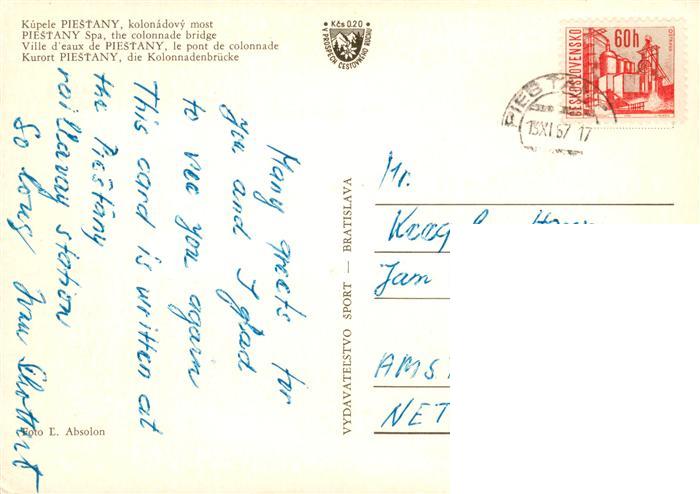 Kúpele PIEŠŤANY, kolonádový most
PIEŠŤANY Spa, the colonnade bridge
Ville d'eaux de PIEŠŤANY, le pont de colonnade
Kurort PIEŠŤANY, die Kolonnadenbrücke
Kčs 0.20
V PROSPECH CESTOVNÉHO RUCHU
60h
ČESKOSLOVENSKO
Ostrava
13.XI.67.17
Many greets for
you and I glad
to see you again
This card is written at
the Piešťany
raillavay station
So long Ivan
VYDAVATEĽSTVO ŠPORT — BRATISLAVA
Mr.
Jam
AMS
NET
Foto Ľ. Absolon